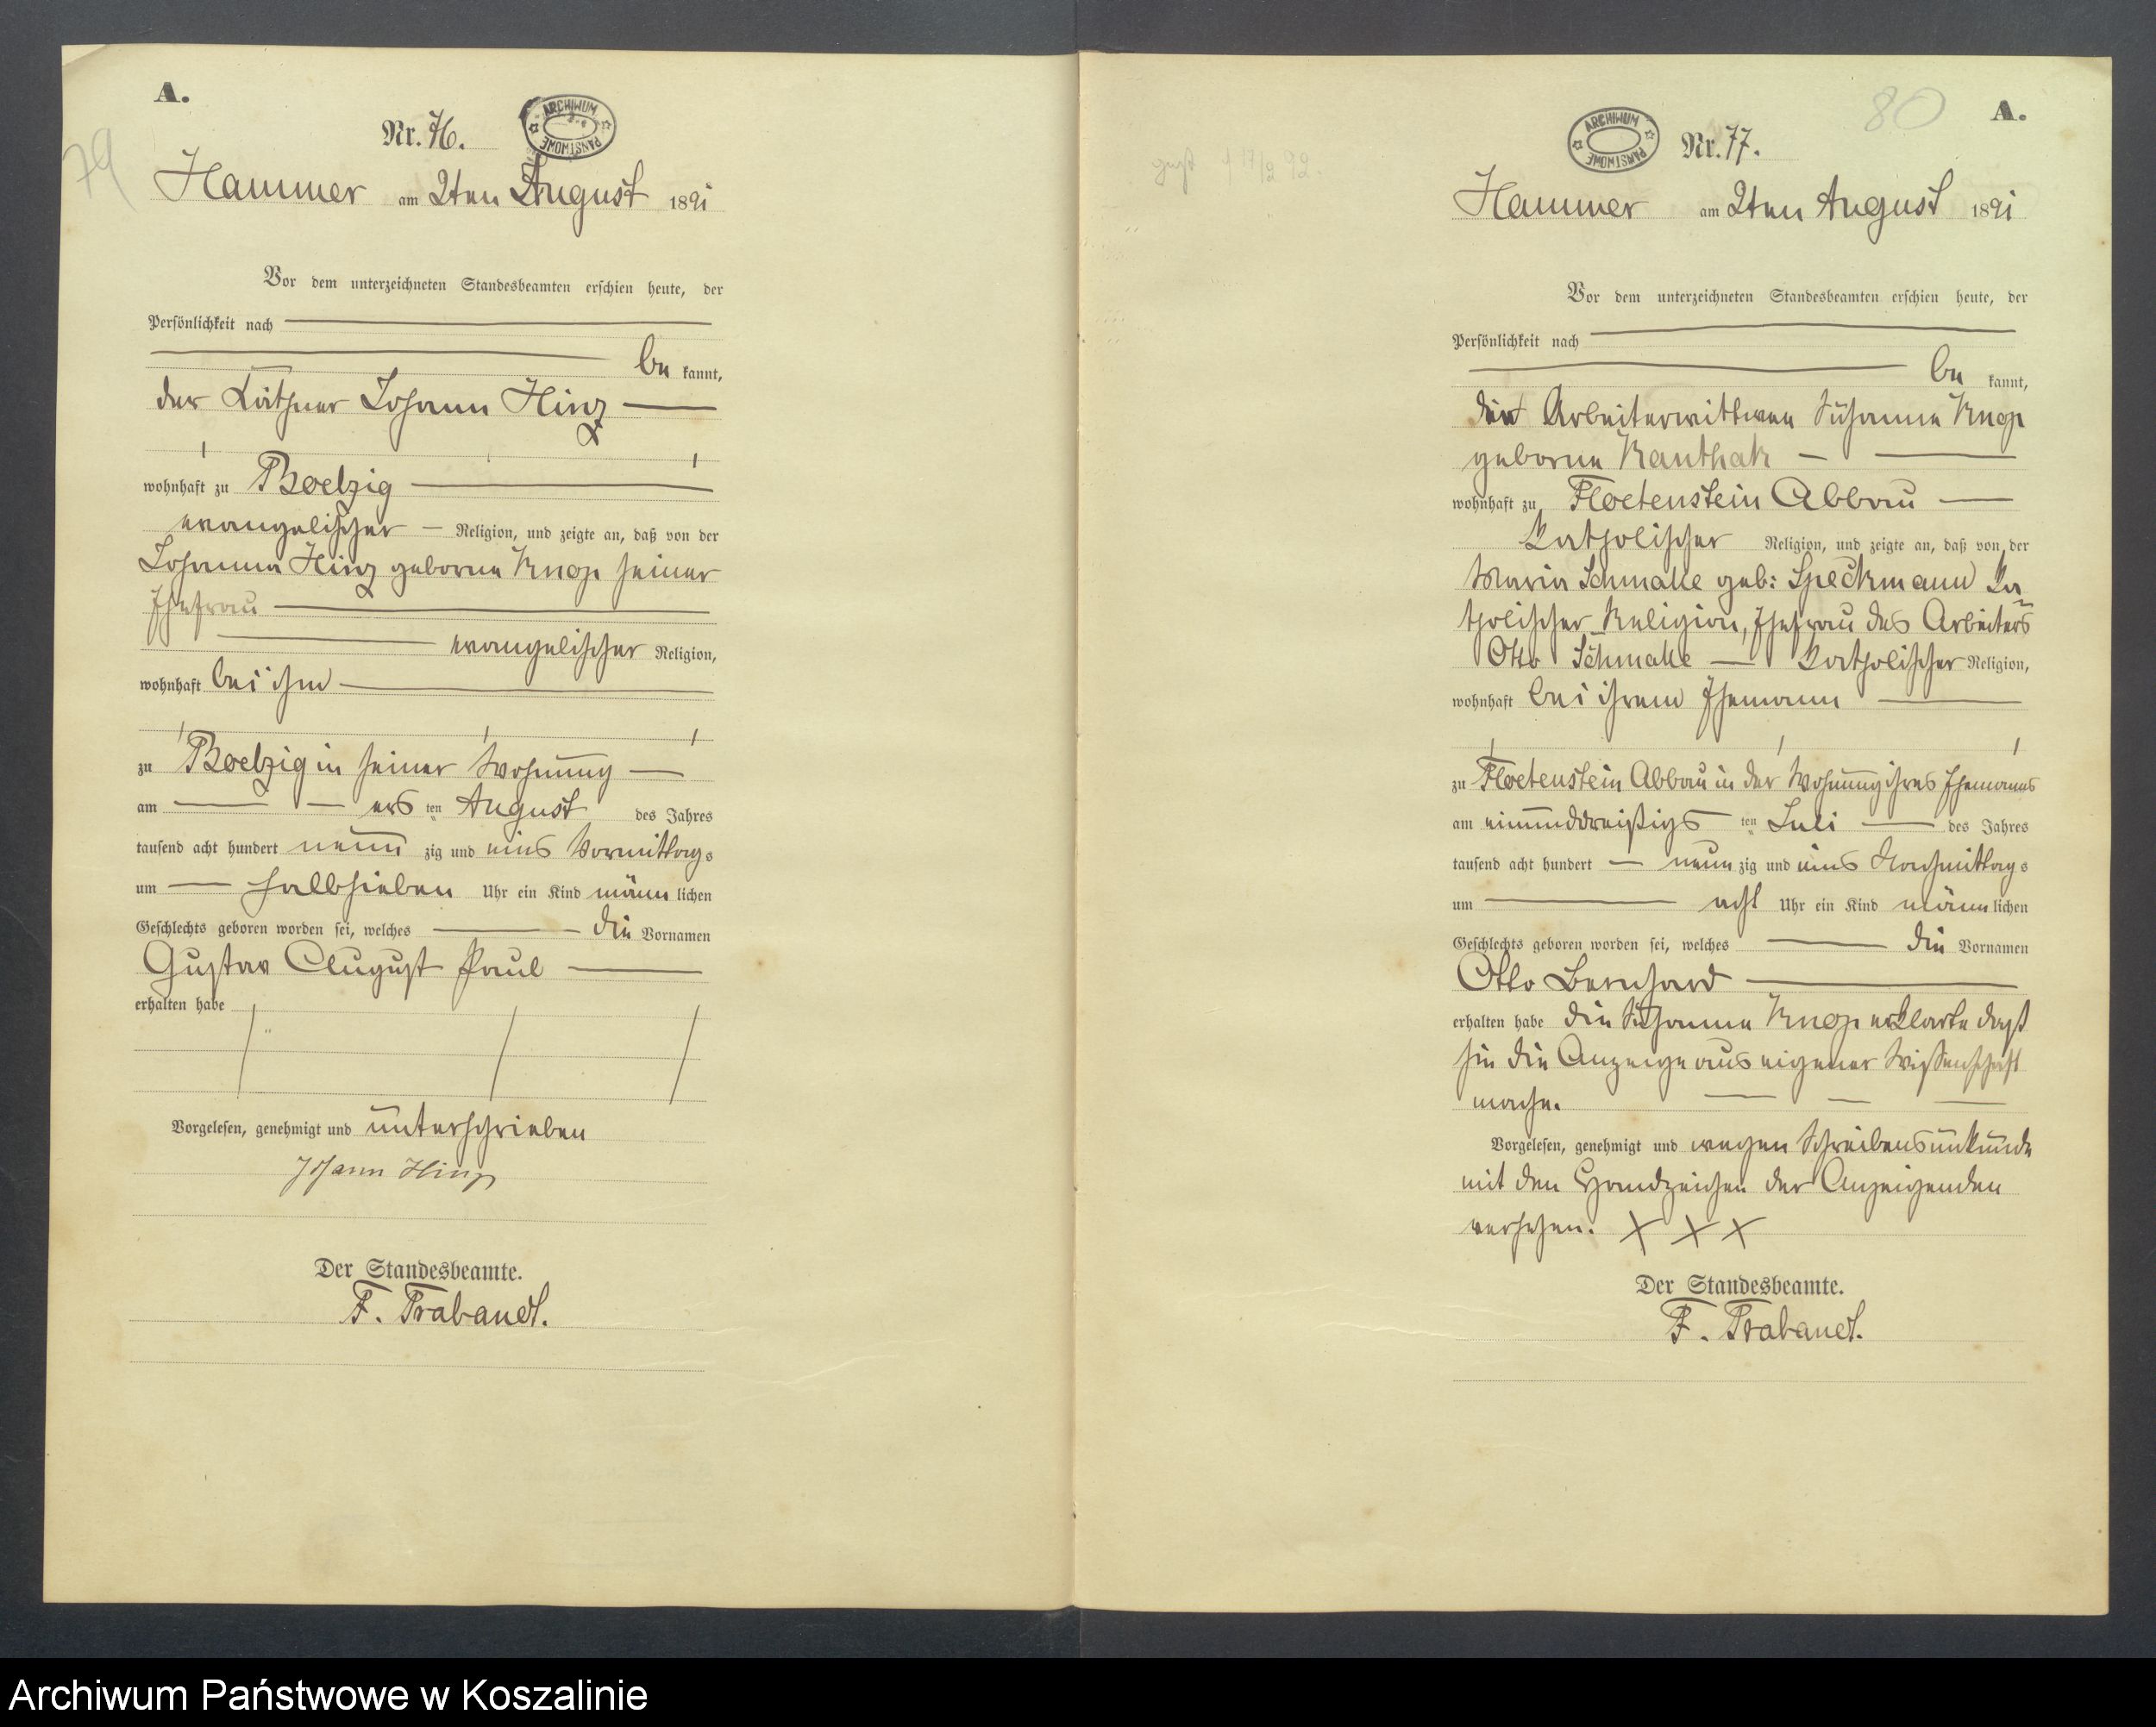 A.
79
Nr. 76.
ARCHIWUM PAŃSTWOWE
Hammer am 2ten August 1891
Vor dem unterzeichneten Standesbeamten erschien heute, der
Persönlichkeit nach
be kannt,
der Käthner Johann Hinz
wohnhaft zu Boelzig
evangelischer Religion, und zeigte an, daß von der
Johanna Hinz geborne Knop seiner
Ehefrau
evangelischer Religion,
wohnhaft bei ihm
zu Boelzig in seiner Wohnung
am ers ten August des Jahres
tausend acht hundert neun zig und eins Vormittags
um halbsieben Uhr ein Kind männ lichen
Geschlechts geboren worden sei, welches die Vornamen
Gustav August Paul
erhalten habe
Vorgelesen, genehmigt und unterschrieben
Johann Hinz
Der Standesbeamte.
F. Trabandt.
80 A.
ARCHIWUM PAŃSTWOWE
Nr. 77.
† 17/2 92.
Hammer am 2ten August 1891
Vor dem unterzeichneten Standesbeamten erschien heute, der
Persönlichkeit nach
be kannt,
die Arbeiterwittwe Susanna Knop
geborne Kanthak
wohnhaft zu Floetenstein Abbau
katholischer Religion, und zeigte an, daß von der
Maria Schmalle geb: Speckmann ka
tholischer Religion, Ehefrau des Arbeiters
Otto Schmalle katholischer Religion,
wohnhaft bei ihrem Ehemann
zu Floetenstein Abbau in der Wohnung ihres Ehemanns
am einunddreißigs ten Juli des Jahres
tausend acht hundert neun zig und eins Nachmittags
um acht Uhr ein Kind männ lichen
Geschlechts geboren worden sei, welches die Vornamen
Otto Bernhard
erhalten habe die Susanna Knop erklarte daß
sie die Anzeige aus eigener Wissenschaft
mache.
Vorgelesen, genehmigt und wegen Schreibensunkunde
mit den Handzeichen der Anzeigenden
versehen. X X X
Der Standesbeamte.
F. Trabandt.
Archiwum Państwowe w Koszalinie